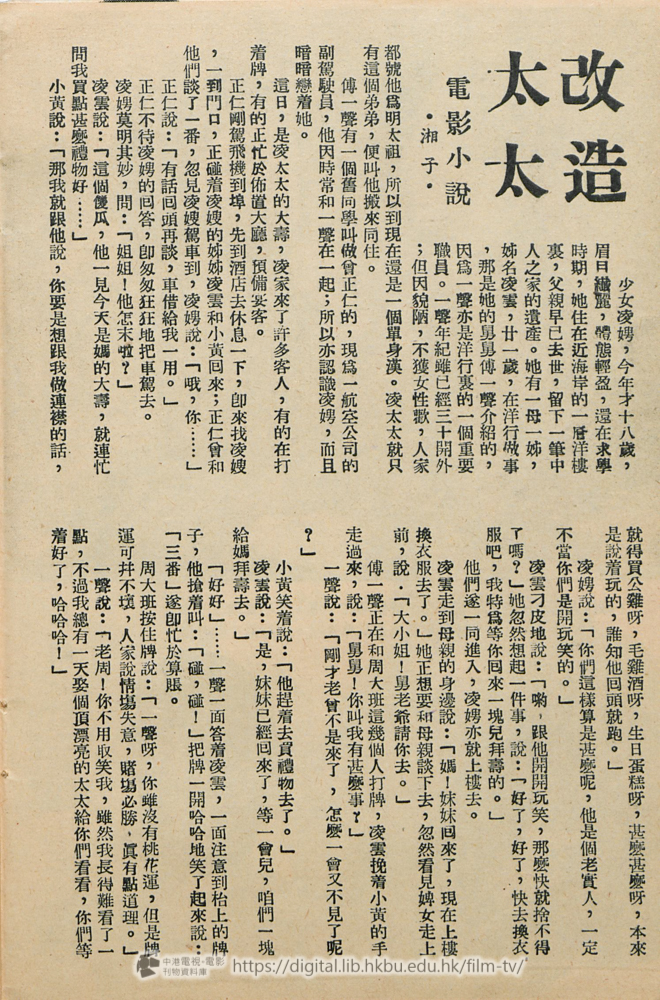 改造
太太
電影小說
•湘子•
少女凌娉，今年才十八歲，
眉目纖麗，體態輕盈，還在求學
時期，她住在近海岸的一層洋樓
裏，父親早已去世，留下一筆中
人之家的遺產。她有一母一姊，
姊名凌雲，廿一歲，在洋行做事
，那是她的舅舅傅一聲介紹的，
因爲一聲亦是洋行裏的一個重要
職員。一聲年紀雖已經三十開外
；但因貌陋，不獲女性歡，人家
都號他爲明太祖，所以到現在還是一個單身漢。凌太太就只
有這個弟弟，便叫他搬來同住。
傅一聲有一個舊同學叫做曾正仁的，現爲一航空公司的
副駕駛員，他因時常和一聲在一起；所以亦認識凌娉，而且
暗暗戀着她。
這日，是凌太太的大壽，凌家來了許多客人，有的在打
着牌，有的正忙於佈置大廳，預備宴客。
正仁剛駕飛機到埠，先到酒店去休息一下，卽來找凌娉
，一到門口，正碰着凌娉的姊姊凌雲和小黃回來；正仁曾和
他們談了一番，忽見凌娉駕車到，凌娉說：「哦，你……」
正仁說：「有話回頭再談，車借給我一用。」
正仁不待凌娉的回答，卽匆匆狂狂地把車駕去。
凌娉莫明其妙，問：「姐姐！他怎末啦？」
凌雲說：「這個傻瓜，他一見今天是媽的大壽，就連忙
問我買點甚麽禮物好……」
小黃說：「那我就跟他說，你要是想跟我做連襟的話，
就得買公雞呀，毛雞酒呀，生日蛋糕呀，甚麽甚麽呀，本來
是說着玩的，誰知他回頭就跑。」
凌娉說：「你們這樣算是甚麽呢，他是個老實人，一定
不當你們是開玩笑的。」
凌雲刁皮地說：「喲，跟他開開玩笑，那麽快就捨不得
了嗎？」她忽然想起一件事，說：「好了，好了，快去換衣
服吧，我特爲等你回來一塊兒拜壽的。」
他們遂一同進入，凌娉亦就上樓去。
凌雲走到母親的身邊說：「媽！妹妹回來了，現在上樓
換衣服去了。」她正想要和母親談下去，忽然看見婢女走上
前，說：「大小姐！舅老爺請你去。」
傅一聲正在和周大班這幾個人打牌，凌雲挽着小黃的手
走過來，說：「舅舅！你叫我有甚麽事？」
一聲說：「剛才老曾不是來了，怎麽一會又不見了呢
？」
小黃笑着說：「他趕着去買禮物去了。」
凌雲說：「是，妹妹已經回來了，等一會兒，咱們一塊
給媽拜壽去。」
「好好」……一聲一面答着凌雲，一面注意到枱上的牌
子，他搶着叫：「碰，碰！」把牌一開哈哈地笑了起來說：
「三番」遂卽忙於算賬。
周大班按住牌說：「一聲呀，你雖沒有桃花運，但是牌
運可幷不壞，人家說情塲失意，賭塲必勝，眞有點道理。」
一聲說：「老周！你不用取笑我，雖然我長得難看了一
點，不過我總有一天娶個頂漂亮的太太給你們看看，你們等
着好了，哈哈哈！」
中港電視•電影
刊物資料庫
https://digital.lib.hkbu.edu.hk/film-tv/